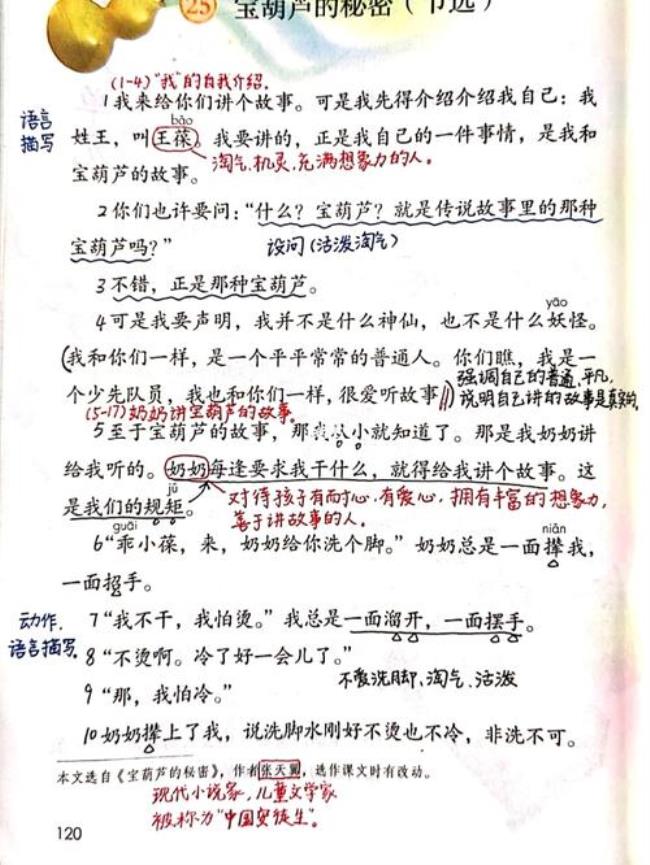 25 宝葫芦的秘密（节选）
(1-4)"我"的自我介绍.
1我来给你们讲个故事。可是我先得介绍介绍我自己：我
语言描写
bǎo
姓王，叫王葆。我要讲的，正是我自己的一件事情，是我和
淘气.机灵.充满想象力的人。
宝葫芦的故事。
2你们也许要问：“什么？宝葫芦？就是传说故事里的那种
宝葫芦吗？”
设问(活泼淘气)
3不错，正是那种宝葫芦。
yāo
4可是我要声明，我并不是什么神仙，也不是什么妖怪。
(我和你们一样，是一个平平常常的普通人。你们瞧，我是一
强调自己的普通.平凡,
个少先队员，我也和你们一样，很爱听故事。)
说明自己讲的故事是真实的.
(5-17)奶奶讲宝葫芦的故事.
5至于宝葫芦的故事，那我从小就知道了。那是我奶奶讲
给我听的。奶奶每逢要求我干什么，就得给我讲个故事。这
jǔ
是我们的规矩。
对待孩子有耐心.有爱心.拥有丰富的想象力,
善于讲故事的人.
guāi
niǎn
6“乖小葆，来，奶奶给你洗个脚。”奶奶总是一面撵我，
一面招手。
动作.
7“我不干，我怕烫。”我总是一面溜开，一面摆手。
语言描写.
8“不烫啊。冷了好一会儿了。”
不爱洗脚、淘气.活泼
9“那，我怕冷。”
10奶奶撵上了我，说洗脚水刚好不烫也不冷，非洗不可。
本文选自《宝葫芦的秘密》，作者张天翼，选作课文时有改动。
现代小说家,儿童文学家
被称为"中国安徒生"。
120